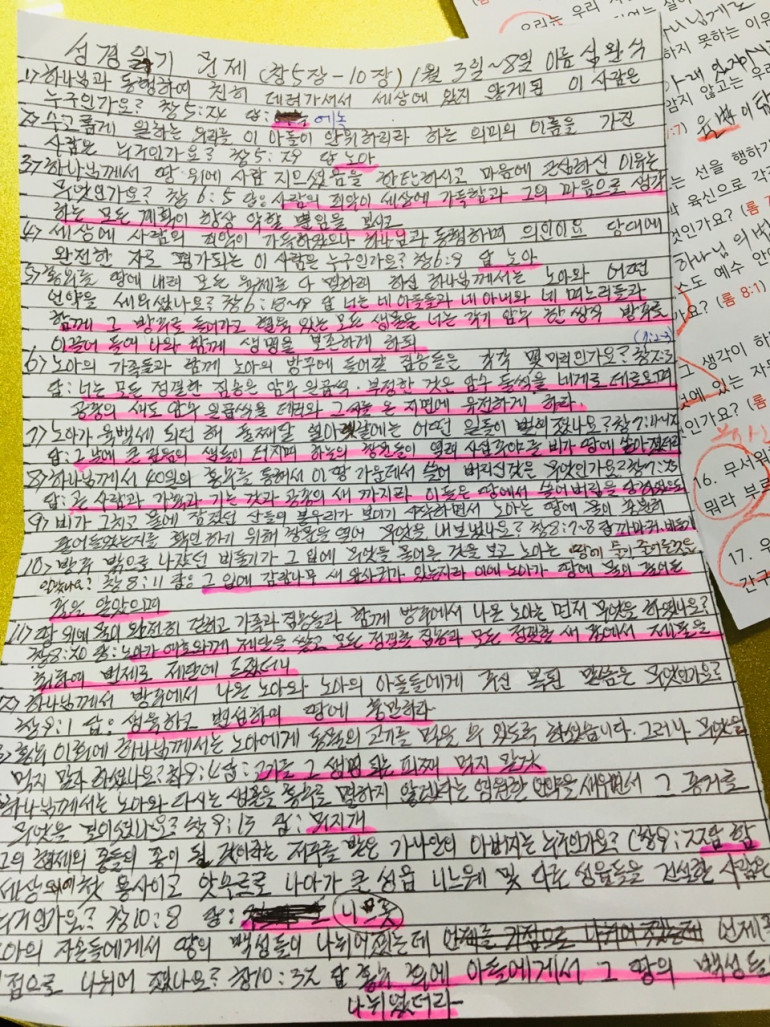 성경읽기 문제 (창5장-10장) 1월 3일~8일 이름 심완식
1) 하나님과 동행하여 친히 데려가셔서 세상에 있지 않게된 이 사람은
누구인가요? 창5:24 답: 에녹
2) 수고롭게 일하는 우리를 이 아들이 안위하리라 하는 의미의 이름을 가진
사람은 누구인가요? 창5:29 답 노아
3) 하나님께서 땅 위에 사람 지으셨음을 한탄하시고 마음에 근심하신 이유는
무엇인가요? 창 6:5 답: 사람의 죄악이 세상에 가득함과 그의 마음으로 생각
하는 모든 계획이 항상 악할 뿐임을 보시고
4) 세상에 사람의 죄악이 가득하였으나 하나님과 동행하며 의인이요 당대에
완전한 자로 평가되는 이 사람은 누구인가요? 창6:9 답 노아
5) 홍수를 땅에 내려 모든 육체를 다 멸하려 하신 하나님께서는 노아와 어떤
언약을 세우셨나요? 창6:18~19 답 너는 네 아들들과 네 아내와 네 며느리들과
함께 그 방주로 들어가고 혈육 있는 모든 생물을 너는 각기 암수 한 쌍씩 방주로
이끌어 들여 너와 함께 생명을 보존하게 하되
6) 노아의 가족들과 함께 노아의 방주에 들어갈 짐승들은 각각 몇마리인가요? 창7:2~3
답: 너는 모든 정결한 짐승은 암수 일곱씩, 부정한 것은 암수 둘씩을 네게로 데려오며
공중의 새도 암수 일곱씩을 데려와 그 씨를 온 지면에 유전하게 하라.
7) 노아가 육백세 되던 해 둘째달 열이렛날에는 어떤 일들이 벌어졌나요? 창7:11
답: 그 날에 큰 깊음의 샘들이 터지며 하늘의 창문들이 열려 사십주야를 비가 땅에 쏟아졌더라
8) 하나님께서 40일의 홍수를 통해서 이 땅 가운데서 쓸어 버리신 것은 무엇인가요? 창7:23
답: 곧 사람과 가축과 기는 것과 공중의 새 까지라 이들은 땅에서 쓸어버림을 당하였으되
9) 비가 그치고 물에 잠겼던 산들의 봉우리가 보이기 시작하면서 노아는 땅에 물이
줄어들었는지를 확인하기 위해 창문을 열어 무엇을 내보냈나요? 창8:7~8 답 까마귀, 비둘기
10) 방주 밖으로 나갔던 비둘기가 그 입에 무엇을 물어온 것을 보고 노아는 땅에 물이 줄어든것을
알았나요? 창8:11 답: 그 입에 감람나무 새 잎사귀가 있는지라 이에 노아가 땅에 물이 줄어든
줄을 알았으며
11) 땅 위에 물이 완전히 걷히고 가족과 짐승들과 함께 방주에서 나온 노아는 먼저 무엇을 하였나요?
창8:20 답: 노아가 여호와께 제단을 쌓고 모든 정결한 짐승과 모든 정결한 새 중에서 제물을
취하여 번제로 제단에 드렸더니
하나님께서 방주에서 나온 노아와 노아의 아들들에게 주신 복된 말씀은 무엇인가요?
창9:1 답: 생육하고 번성하여 땅에 충만하라
홍수 이후에 하나님께서는 노아에게 동물의 고기를 먹을 수 있도록 하셨습니다. 그러나 무엇을
먹지 말라 하셨나요? 창9:4 답: 고기를 그 생명 되는 피째 먹지 말것
하나님께서는 노아와 다시는 생물을 홍수로 멸하지 않겠다는 영원한 언약을 세우면서 그 증거로
무엇을 보이셨나요? 창9:13 답: 무지개
그의 형제의 종들의 종이 될 것이라는 저주를 받은 가나안의 아버지는 누구인가요? (창9:22 답 함
세상에 첫 용사이고 앗수르로 나아가 큰 성읍 니느웨 및 다른 성읍들을 건설한 사람은
누구인가요? 창10:8 답: 니므롯
노아의 자손들에게서 땅의 백성들이 나뉘어졌는데 언제를 기점으로 나뉘어 졌는데 언제
점으로 나뉘어 졌나요? 창10:32 답 홍수 후에 이들에게서 그 땅의 백성들
나뉘었더라
우리는 우리
하지 못하는 이유
않고는 우리
는 선을 행하기
육신으로 각각
것인가요? (롬 7
하나님의 법
스도 예수 안
가요? (롬 8:1)
그 생각이 하
에 있는 자유
인가요? (롬
16. 무서워
뭐라 부르
17. 우
간구